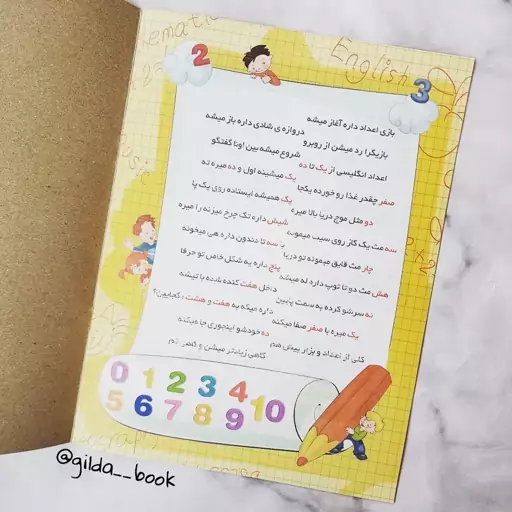 ematic
English
2
3
بازی اعداد داره آغاز میشه
دروازه ی شادی داره باز میشه
بازیکرا رد میشن از روبرو
شروع میشه بین اونا گفتگو
اعداد انگلیسی از یک تا ده
یک میشینه اول و ده میره ته
صفر چقدر غذا رو خورده یکجا
یک همیشه ایستاده روی یک پا
دو مثل موج دریا بالا میره
شیش داره تک چرخ میزنه را میره
سه مث یک گاز روی سیب میمونه
با سه تا دندون داره هی میخونه
چار مث قایق میمونه تو دریا
پنج داره یه شکل خاص تو حرفا
هش مث دو تا توپ داره له میشه
داخل هفت کنده شده با تیشه
نه سرشو کرده به سمت پایین
داره میگه به هفت و هشت: کجایین؟
یک میره با صفر صفا میکنه
ده خودشو اینجوری جا میکنه
کلی از اعداد و بزار پیش هم
گاهی زیادتر میشن و گاهی کم
0 1 2 3 4
5 6 7 8 9 10
@gilda__book